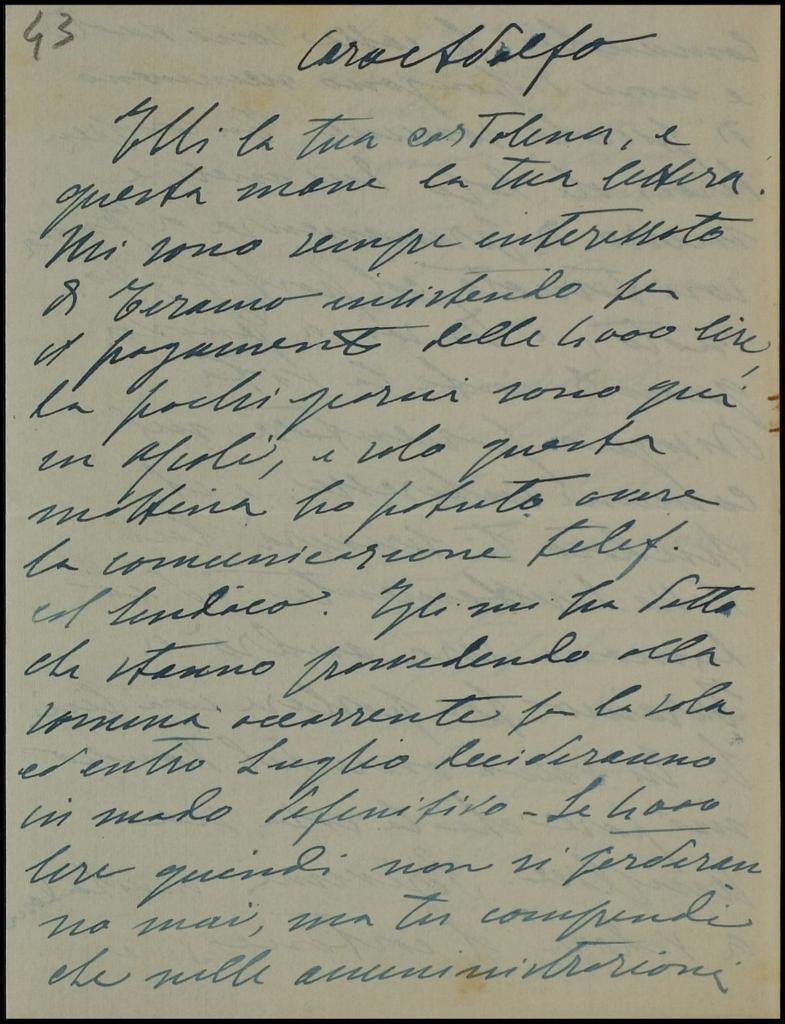 43
Caro Adolfo
Ebbi la tua cartolina, e
questa mane la tua lettera.
Mi sono sempre interessato
di Teramo insistendo per
il pagamento delle 4000 lire,
da pochi giorni sono qui
in Ascoli, e solo questa
mattina ho potuto avere
la comunicazione telef.
col Sindaco. Egli mi ha detto
che stanno provvedendo alla
somma occorrente per la sola
ed entro Luglio decideranno
in modo definitivo - Le 4000
lire quindi non si perderan
no mai, ma tu comprendi
che nelle amministrazioni